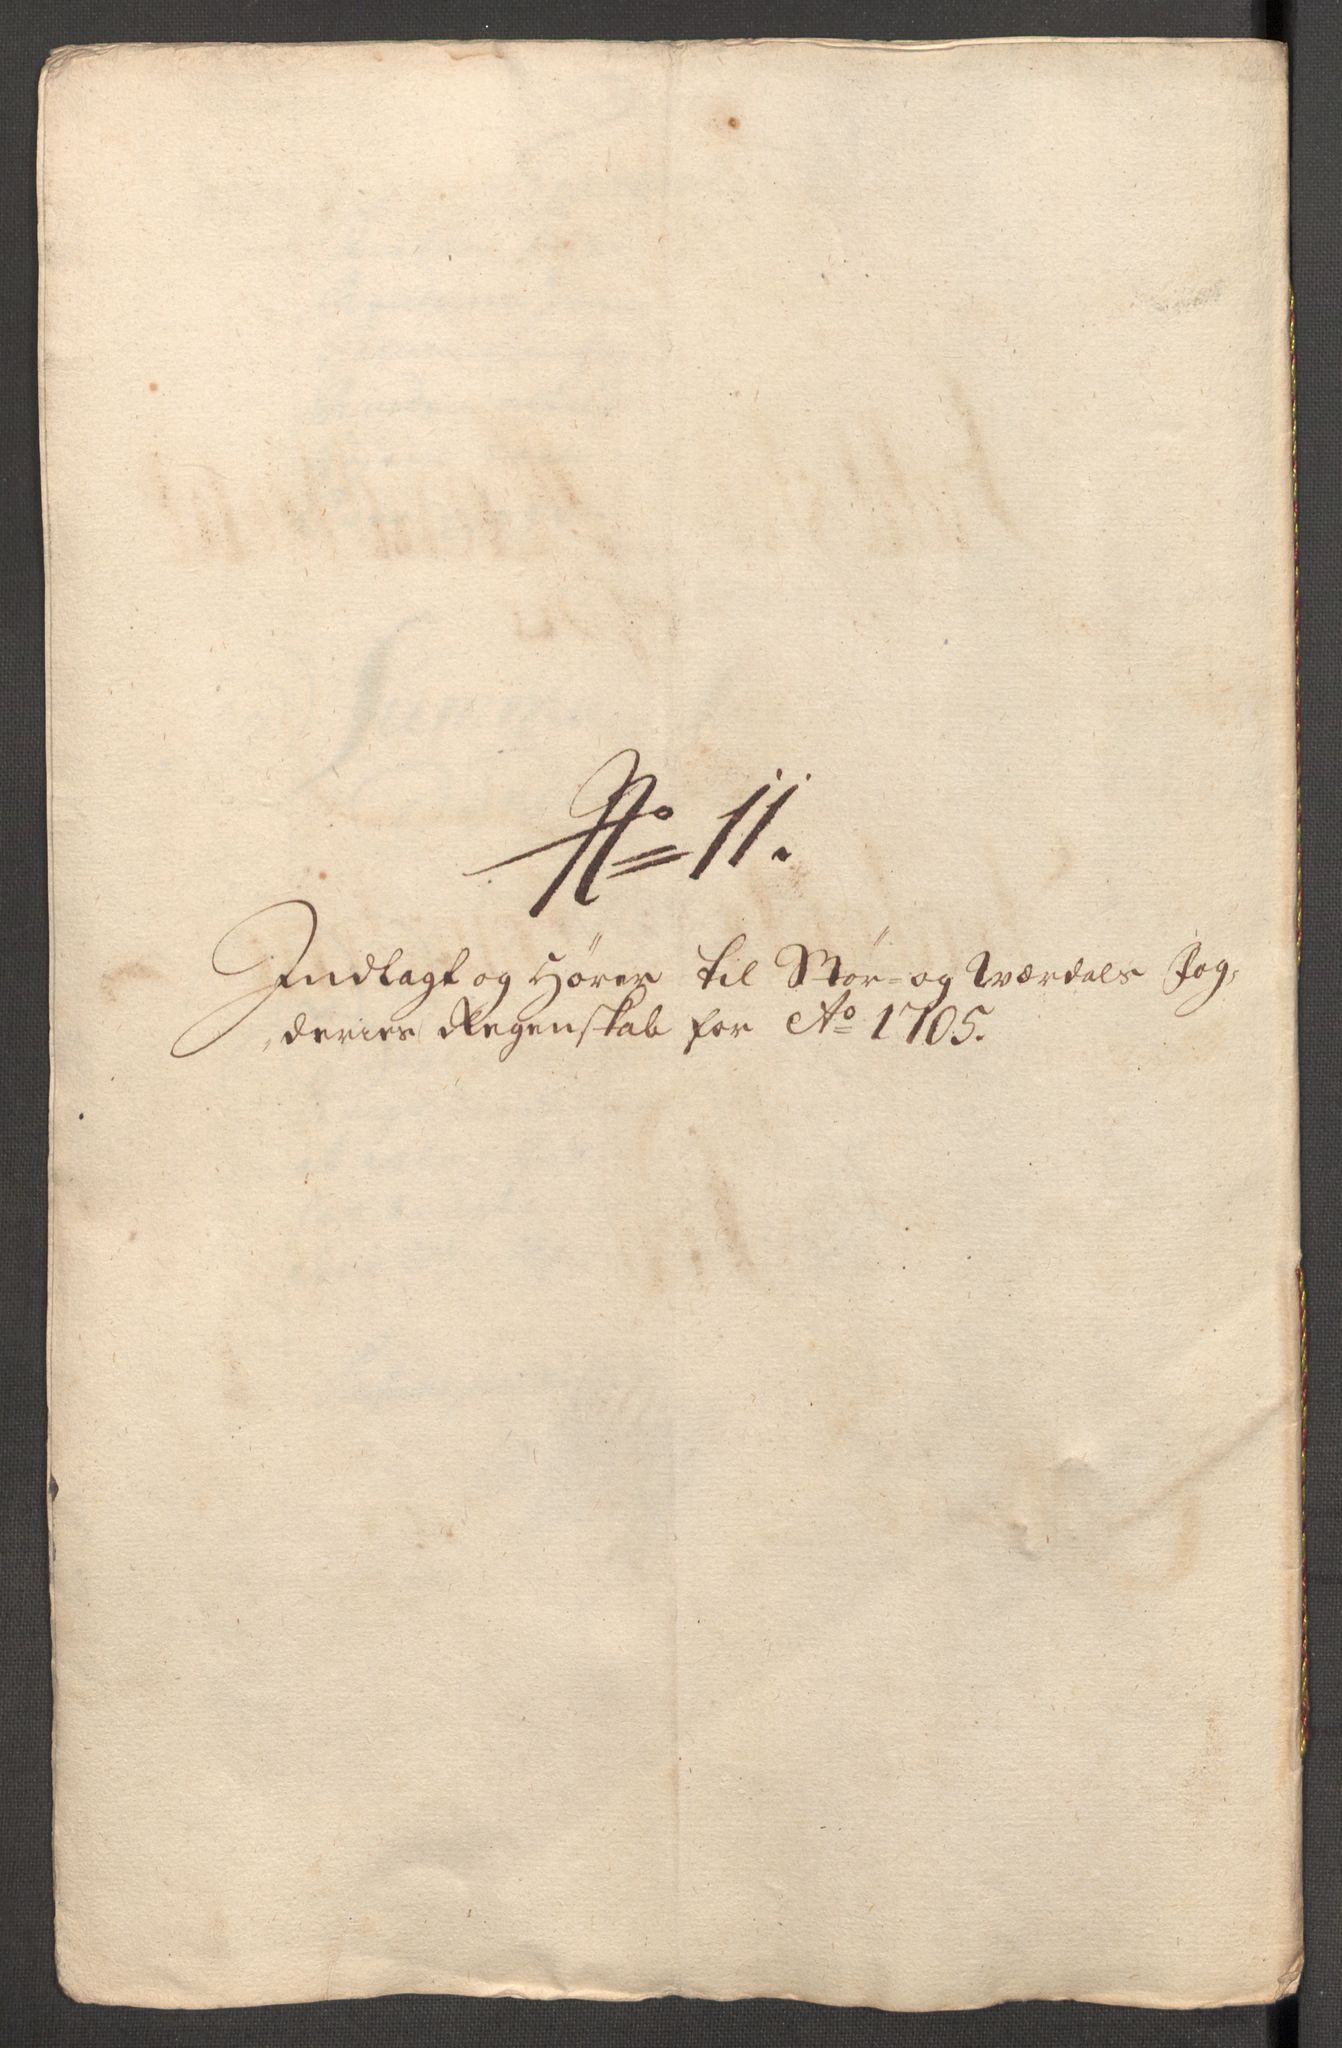 No 11.
Indlagt og Hører til Stør- og Værdals Fog,
„deries Regenskab for Ao 1705.